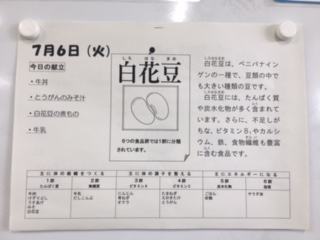 7月6日(火)
今日の献立
・牛丼
・とうがんのみそ汁
・白花豆の煮もの
・牛乳
しろ はな まめ
白花豆
6つの食品群では1群に分類
されています。
白花豆は、ベニバナイン
ゲンの一種で、豆類の中で
も大きい種類の豆です。
白花豆には、たんぱく質
や炭水化物が多く含まれて
います。さらに、不足しが
ちな、ビタミンB₁やカルシ
ウム、鉄、食物繊維も豊富
に含む食品です。
主に体の組織をつくる
主に体の調子を整える
主にエネルギーになる
1群 2群 3群 4群 5群 6群
たんぱく質 無機質 ビタミンA ビタミンC 炭水化物 脂質
牛肉
みそ
白花豆
牛乳
だしこんぶ
にんじん
ごはん
砂糖